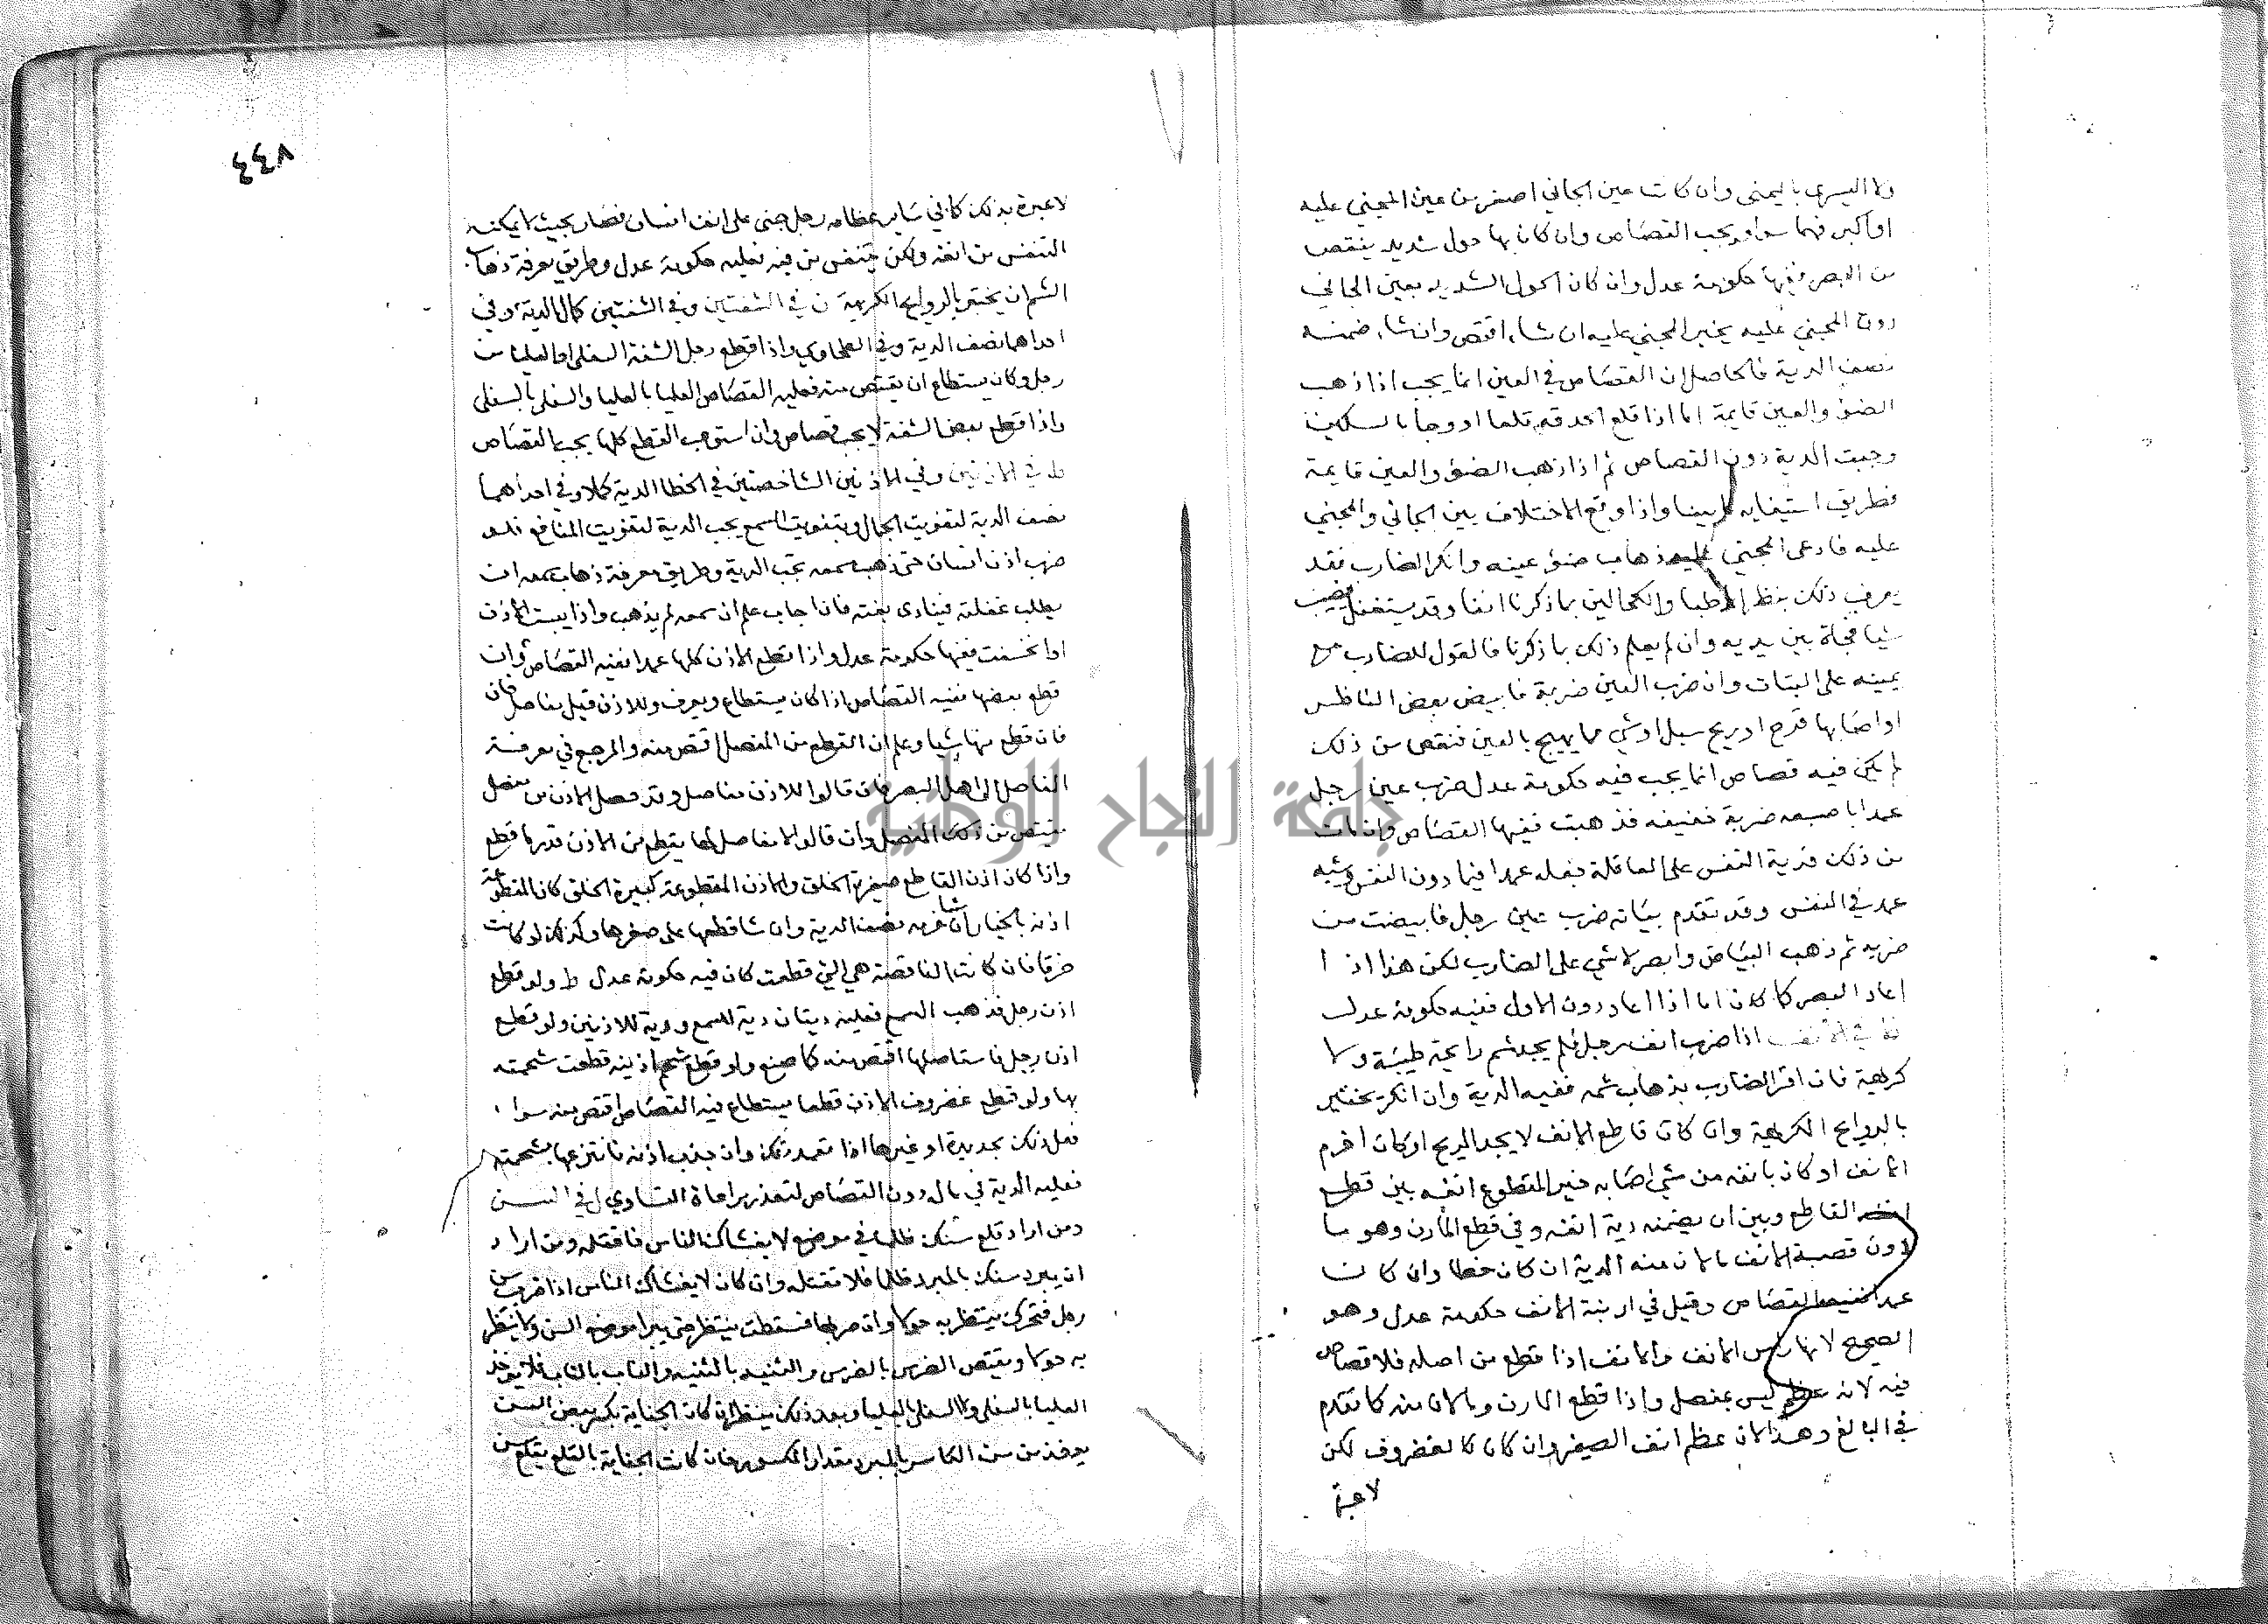 ولا اليسرى باليمنى وان كانت عين الجاني اصغر من عين المجني عليه
او اكبر فهما سوا ويجب القصاص وان كان بها حول شديد ينقص
من البصر ففيها حكومة عدل وان كان الحول الشديد بعين الجاني
دون المجني عليه يخير المجني عليه ان شاء اقتص وان شاء ضمنه
نصف الدية فالحاصل ان القصاص في العين انما يجب اذا ذهب
الضؤ والعين قايمة اما اذا قلع الحدقة قلعا او وجا بالسكين
وجبت الدية دون القصاص ثم اذا ذهب الضؤ والعين قايمة
فطريق استيفايه ما بينا واذا وقع الاختلاف بين الجاني والمجني
عليه فادعى المجني عليه ذهاب ضؤ عينه وانكر الضارب فقد
يعرف ذلك بنظر الاطبا والكحالين بما ذكرنا انفا وقد يستغفل فيصب
شيا فجاة بين يديه وان لم يعلم ذلك بما ذكرنا فالقول للضارب مع
يمينه على البتات وان ضرب العين ضربة فابيض بعض الناظر
او اصابها قرح او ريح سبل او شي مما يهيج بالعين فنقص من ذلك
لم يكن فيه قصاص انما يجب فيه حكومة عدل ضرب عين رجل
عمدا باصبعه ضربة خفيفه فذهبت ففيها القصاص وان مات
من ذلك فدية النفس على العاقلة فجعله عمدا فيما دون النفس وشبه
عمد في النفس وقد تقدم بيانه ضرب عين رجل فابيضت من
ضربه ثم ذهب البياض وابصر لا شي على الضارب لكن هذا اذا
اعاد البصر كما كان اما اذا اعاد دون الاول ففيه حكومة عدل
في الانف اذا ضرب انف رجل فلم يجد شم رايحة طيبة ولا
كريهة فان اقر الضارب بذهاب شمه ففيه الدية وان انكر يختبر
بالروايح الكريهة وان كان قاطع الانف لا يجد الريح او كان اخرم
الانف او كان بانفه من شي اصابه خير المقطوع انفه بين قطع
انف القاطع وبين ان يضمنه دية انفه وفي قطع المارن وهو ما
دون قصبة الانف مالان منه الدية ان كان خطا وان كان
عمدا ففيه القصاص وقيل في ارنبة الانف حكومة عدل وهو
الصحيح لانها راس الانف والانف اذا قطع من اصله فلا قصاص
فيه لانه عظم ليس بمفصل واذا قطع المارن ومالان منه كما تقدم
في البالغ وهذا لان عظم انف الصغير وان كان كالغضروف لكن
لا عبرة
٤٤٨
لا عبرة بذلك كما في ساير عظامه رجل جنى على انف انسان فصار بحيث لا يمكنه
التنفس من انفه ولكن يتنفس من فيه فعليه حكومة عدل وطريق معرفة ذهاب
الشم ان يختبر بالروايح الكريهة في الشفتين وفي الشفتين كمال الدية وفي
احداهما نصف الدية وفي الطحاوي واذا قطع رجل الشفة السفلى او العليا من
رجل وكان يستطاع ان يقتص منه فعليه القصاص العليا بالعليا والسفلى بالسفلى
واذا قطع بعض الشفة لا يجب قصاص وان استوعب القطع كلها يجب القصاص
في الاذنين وفي الاذنين الشاخصتين في الخطا الدية كملا وفي احداهما
نصف الدية لتفويت الجمال وبتفويت السمع يجب الدية لتفويت المنافع فلو
ضرب اذن انسان حتى ذهب سمعه تجب الدية وطريق معرفة ذهاب سمعه ان
يطلب غفلته فينادى بغتة فاذا جاب علم ان سمعه لم يذهب واذا يبست الاذن
او انخسفت ففيها حكومة عدل واذا قطع الاذن كلها عمدا ففيه القصاص وان
قطع بعضها ففيه القصاص اذا كان يستطاع ويعرف وللاذن قيل مفاصل فان
فان قطع منها شيا وعلم ان القطع من المفصل اقتص منه والمرجع في معرفة
المفاصل الى اهل البصر فان قالوا للاذن مفاصل وقد فصل الاذن من مفصل
يقتص من ذلك المفصل وان قالوا لا مفاصل لها يقطع من الاذن قدر ما قطع
واذا كان اذن القاطع صغيرة الخلق والاذن المقطوعة كبيرة الخلق كان المقطوعة
اذنه بالخيار ان شا غرمه نصف الدية وان شا قطعها على صغرها وكذلك لو كانت
خرقا فان كانت الناقصة هي التي قطعت كان فيه حكومة عدل ط ولو قطع
اذن رجل فذهب السمع فعليه ديتان دية للسمع ودية للاذنين ولو قطع
اذن رجل فاستاصلها اقتص منه كما صنع ولو قطع شحم اذنيه قطعت شحمته
بها ولو قطع غضروف الاذن قطعا يستطاع فيه القصاص اقتص منه سوا
فعل ذلك بحديدة او غيرها اذا تعمد ذلك وان جذب اذنه فانتزعها بشحمته
فعليه الدية في ماله دون القصاص لتعذر مراعاة التساوي في السن
ومن اراد قلع سنك ظلما في موضع لا يغشاك الناس فاقتله ومن اراد
ان يبرد سنك بالمبرد ظلما فلا تقتله وان كان لا يغشاك الناس اذا ضرب سن
رجل فتحرك ينتظر به حولا وان ضربها فسقطت ينتظر حتى يبرا موضع السن ولا ينتظر
به حولا ويقتص الضرس بالضرس والثنيه بالثنيه والناب بالناب فلا يوخذ
العليا بالسفلى ولا السفلى بالعليا وبعد ذلك ينظر ان كان الجناية بكسر بعض السن
يوخذ من سن الكاسر بالمبرد مقدار المكسور وان كانت الجناية بالقلع يقلع سن
جامعة النجاح الوطنية